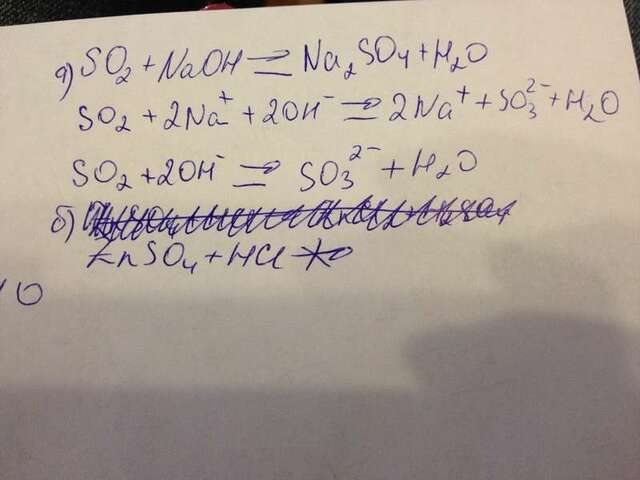 а) SO₂ + NaOH ⇌ Na₂SO₄ + H₂O
SO₂ + 2Na⁺ + 2OH⁻ ⇌ 2Na⁺ + SO₃²⁻ + H₂O
SO₂ + 2OH⁻ ⇌ SO₃²⁻ + H₂O
б)
ZnSO₄ + HCl ↛